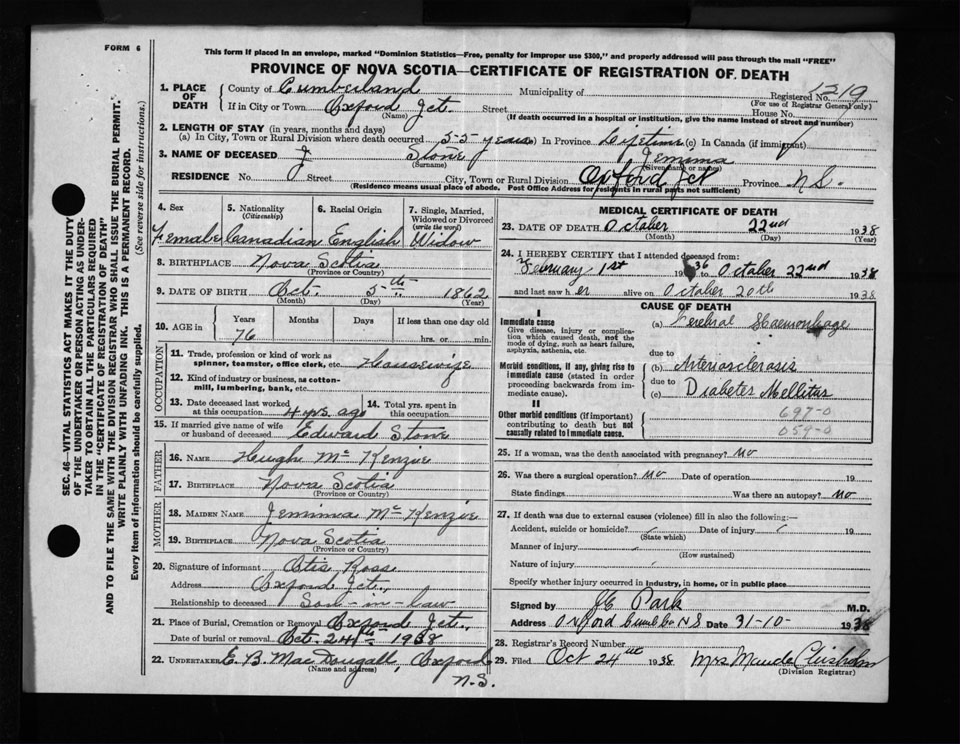 FORM 6
This form if placed in an envelope, marked "Dominion Statistics—Free, penalty for improper use $300," and properly addressed will pass through the mail "FREE"
PROVINCE OF NOVA SCOTIA—CERTIFICATE OF REGISTRATION OF DEATH
1. PLACE OF DEATH
County of Cumberland Municipality of Registered No. 219
(For use of Registrar General only)
If in City or Town Oxford Jct. Street House No.
(Name) (If death occurred in a hospital or institution, give the name instead of street and number)
2. LENGTH OF STAY (in years, months and days)
(a) In City, Town or Rural Division where death occurred 55 years (b) In Province Lifetime (c) In Canada (if immigrant)
3. NAME OF DECEASED Stone Jemima
(Surname) (Given name or names)
RESIDENCE No. Street City, Town or Rural Division Oxford Jct Province N.S.
(Residence means usual place of abode. Post Office Address for residents in rural parts not sufficient)
4. Sex 5. Nationality (Citizenship) 6. Racial Origin 7. Single, Married, Widowed or Divorced (write the word)
Female Canadian English Widow
8. BIRTHPLACE Nova Scotia
(Province or Country)
9. DATE OF BIRTH Oct. 5th 1862
(Month) (Day) (Year)
10. AGE in Years Months Days If less than one day old
76 hrs. or min.
OCCUPATION
11. Trade, profession or kind of work as spinner, teamster, office clerk, etc. Housewife
12. Kind of industry or business, as cotton-mill, lumbering, bank, etc.
13. Date deceased last worked at this occupation 4 yrs. ago 14. Total yrs. spent in this occupation
15. If married give name of wife or husband of deceased Edward Stone
FATHER
16. NAME Hugh McKenzie
17. BIRTHPLACE Nova Scotia
(Province or Country)
MOTHER
18. MAIDEN NAME Jemima McKenzie
19. BIRTHPLACE Nova Scotia
(Province or Country)
20. Signature of informant Otis Ross
Address Oxford Jct.,
Relationship to deceased Son-in-law
21. Place of Burial, Cremation or Removal Oxford Jct.,
Date of burial or removal Oct. 24th 1938
22. UNDERTAKER E. B. MacDougall, Oxford
(Name and address) N.S.
MEDICAL CERTIFICATE OF DEATH
23. DATE OF DEATH October 22nd 1938
(Month) (Day) (Year)
24. I HEREBY CERTIFY that I attended deceased from:
February 1st 1936 to October 22nd 1938
and last saw her alive on October 20th 1938
CAUSE OF DEATH
I
Immediate cause
Give disease, injury or complication which caused death, not the mode of dying, such as heart failure, asphyxia, asthenia, etc.
(a) Cerebral Haemorrhage
due to
Morbid conditions, if any, giving rise to immediate cause (stated in order proceeding backwards from immediate cause).
(b) Arteriosclerosis
due to
(c) Diabetes Mellitus
II
Other morbid conditions (if important) contributing to death but not causally related to immediate cause.
697-0
059-0
25. If a woman, was the death associated with pregnancy? No
26. Was there a surgical operation? No Date of operation 19
State findings Was there an autopsy? No
27. If death was due to external causes (violence) fill in also the following:—
Accident, suicide or homicide? Date of injury 19
(State which)
Manner of injury
(How sustained)
Nature of injury
Specify whether injury occurred in industry, in home, or in public place
Signed by J E Park M.D.
Address Oxford Cumb Co N S Date 31-10- 1938
28. Registrar's Record Number
29. Filed Oct 24th 1938 Mrs Maude Chisholm
(Division Registrar)
SEC. 46—VITAL STATISTICS ACT MAKES IT THE DUTY
OF THE UNDERTAKER OR PERSON ACTING AS UNDER-
TAKER TO OBTAIN ALL THE PARTICULARS REQUIRED
IN THE "CERTIFICATE OF REGISTRATION OF DEATH"
AND TO FILE THE SAME WITH THE DIVISION REGISTRAR WHO SHALL ISSUE THE BURIAL PERMIT.
WRITE PLAINLY WITH UNFADING INK. THIS IS A PERMANENT RECORD.
Every item of information should be carefully supplied. (See reverse side for instructions.)